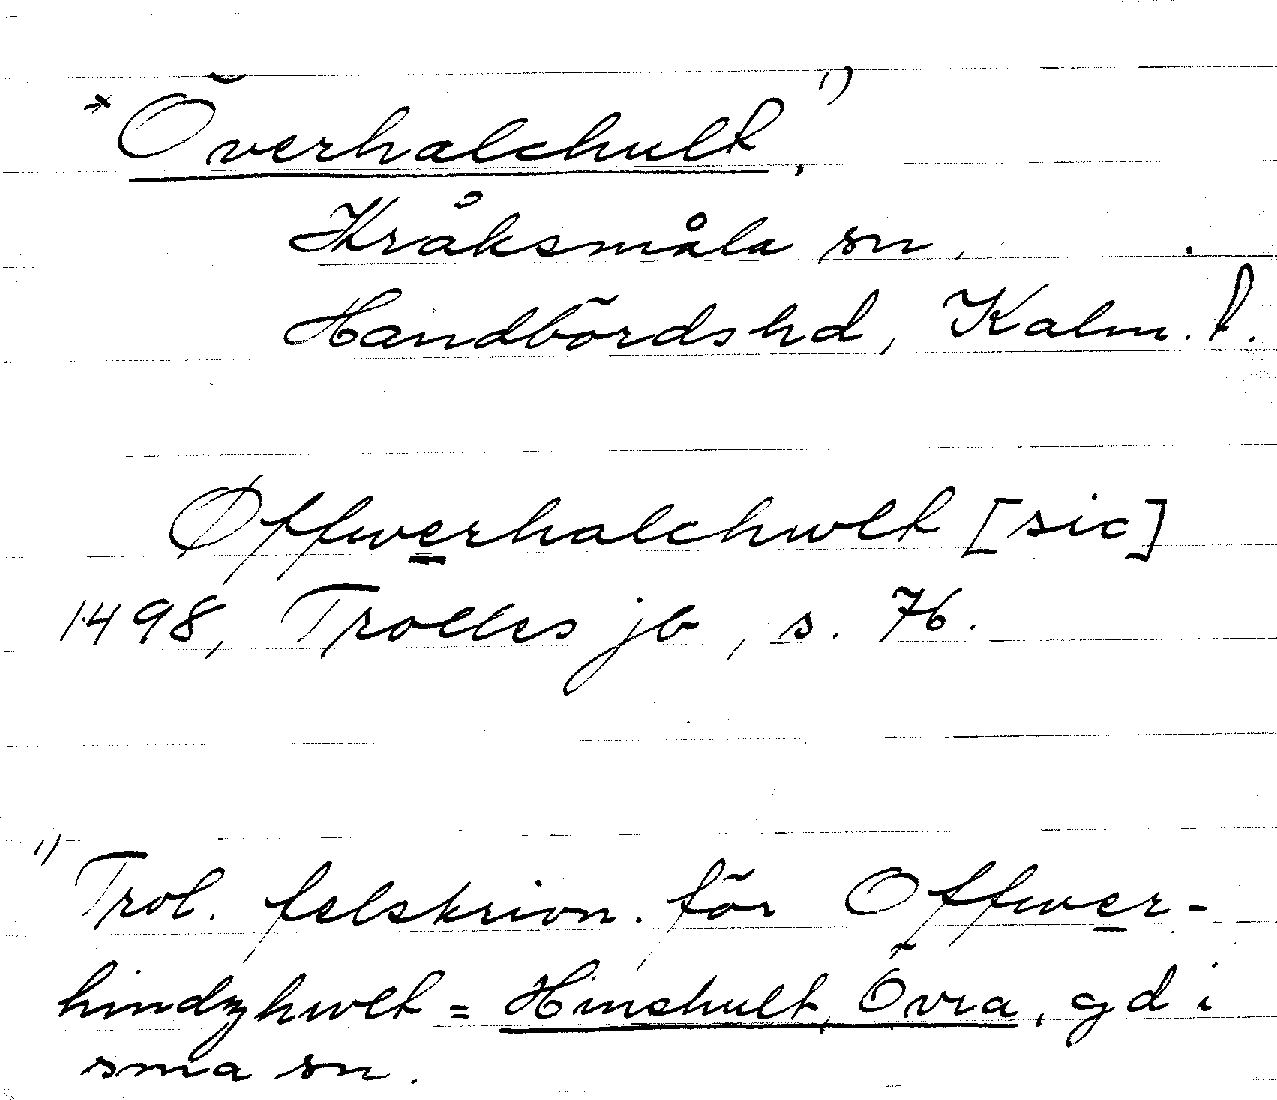 *Överhalchult,¹⁾
Kråksmåla sn,
Handbördshd, Kalm. l.
Øffwerhalchwlt [sic]
1498, Trolles jb, s. 76.
¹⁾ Trol. felskrivn. för Offwer-
hindzhwlt = Hinshult, Övra, gd i
sma sn.